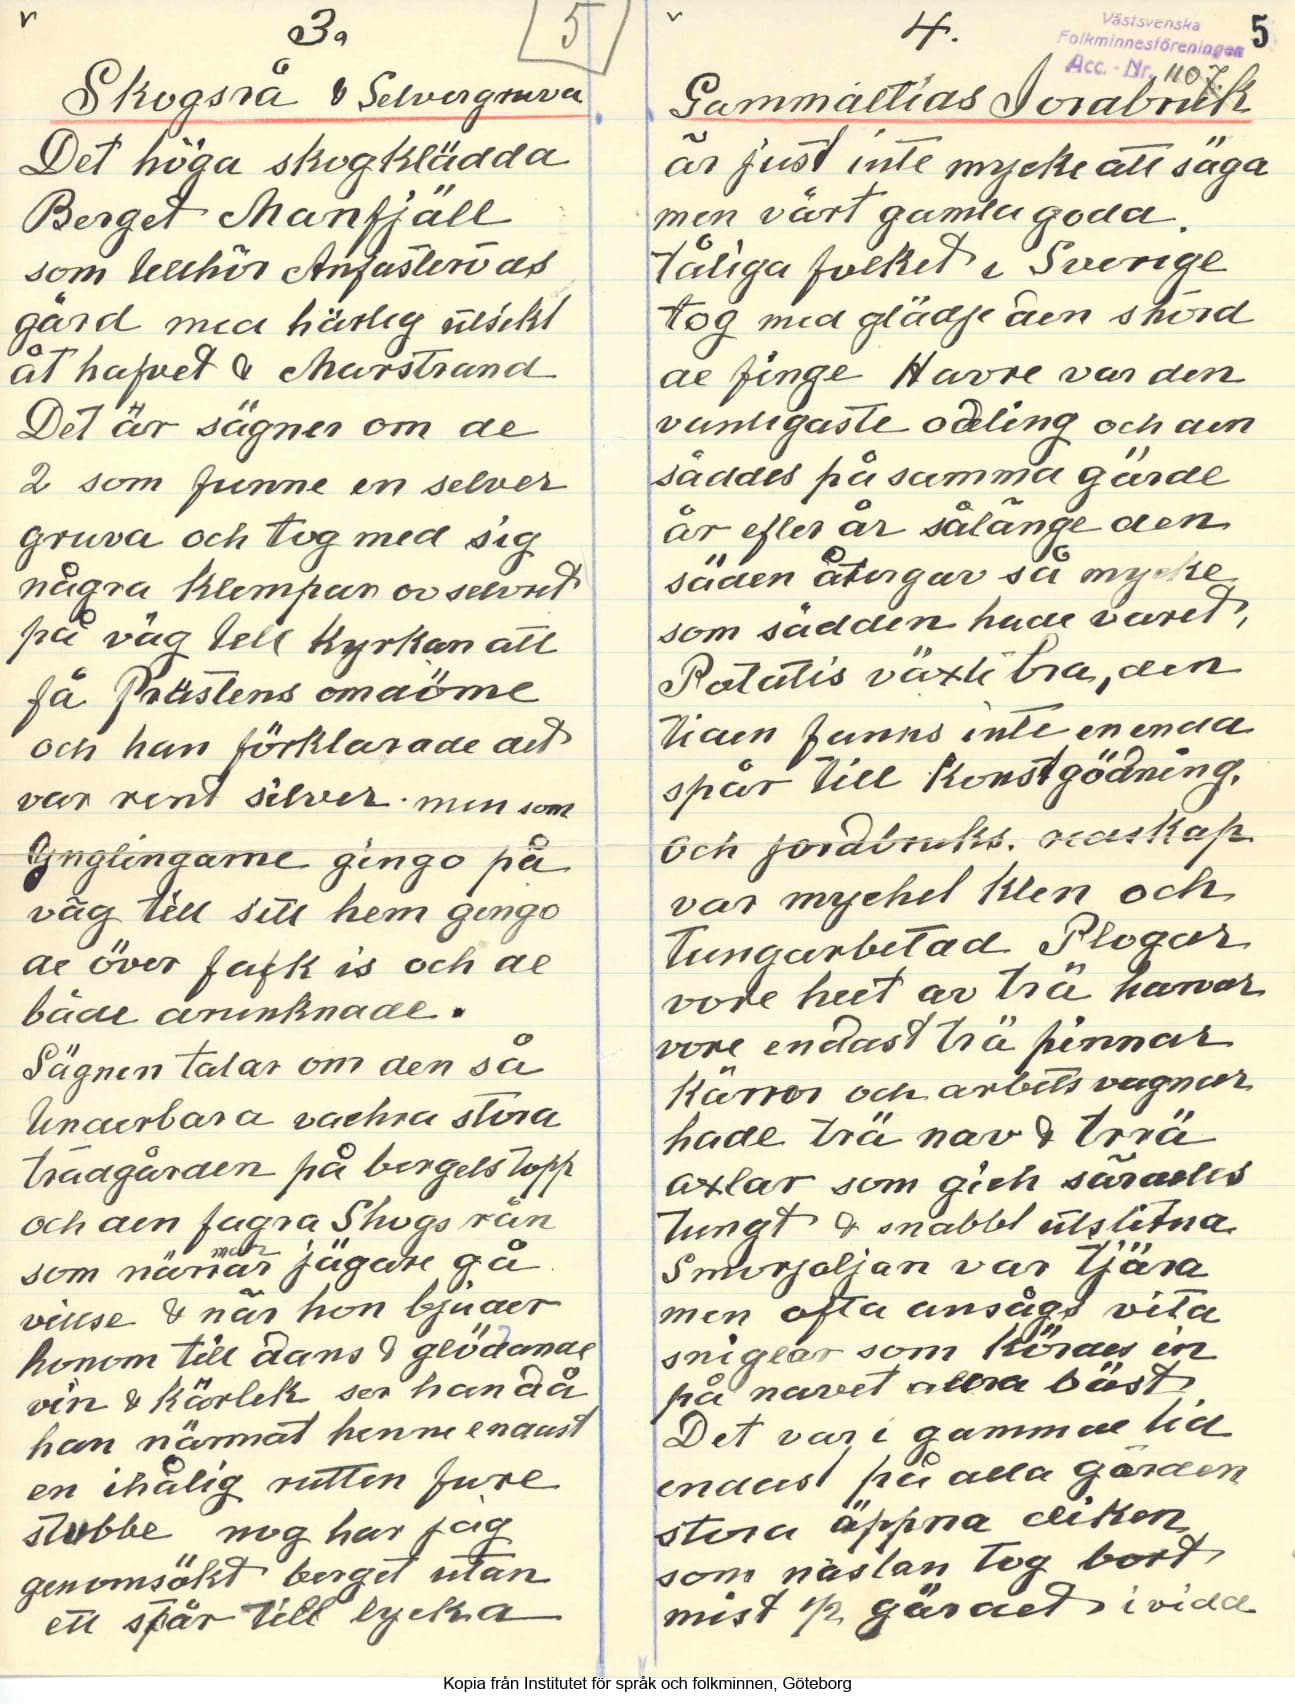 3a
5
Skogsrå & Selvergruva
Det höga skogklädda
Berget Manfjäll
som tillhör Anfasteröds
gård med härlig utsikt
åt hafvet & Marstrand
Det är sägner om de
2 som funne en selver
gruva och tog med sig
några klempar ov selvret
på väg tell Kyrkan att
få Prästens omdöme
och han förklarade det
var rent silver. men som
Ynglingarne gingo på
väg till sitt hem gingo
de över falsk is och de
både drunknade.
Sägnen talar om den så
underbara vackra stora
trädgården på bergets topp
och den fagra Skogs rån
som närrar man jägare gå
villse & når hon bjuder
honom till dans & glödande
vin & kärlek ser han då
han närmat henne endast
en ihålig rutten fure
stubbe nog har jag
genomsökt berget utan
ett spår till lycka
4.
Västsvenska
Folkminnesföreningen
Acc. - Nr. 1107
5
Gammaltids Jordbruk
är just inte mycke att säga
men vårt gamla goda.
tåliga folket i Sverige
tog med glädje den skörd
de finge Havre var den
vanligaste odling och den
såddes på samma gärde
år efter år sålänge den
säden återgav så mycke
som sädden hade varet,
Potatis växte bra, den
tiden fanns inte en enda
spår till Konstgödning.
och jordbruks. redskap
var mychet klen och
tungarbetad Plogar
vore helt av trä harvar
vore endast trä pinnar
Kärror och arbets vagnar
hade trä nav & trrä
axlar som gich särdeles
tungt & snabbt utslitna
Smörjoljan var tjära
men ofta ansågs vita
sniglar som kördes in
på navet allra bäst
Det var i gammal tid
endast på alla gärden
stora äppna diken
som nästan tog bort
mist 1/2 gärdet i vidd
Kopia från Institutet för språk och folkminnen, Göteborg